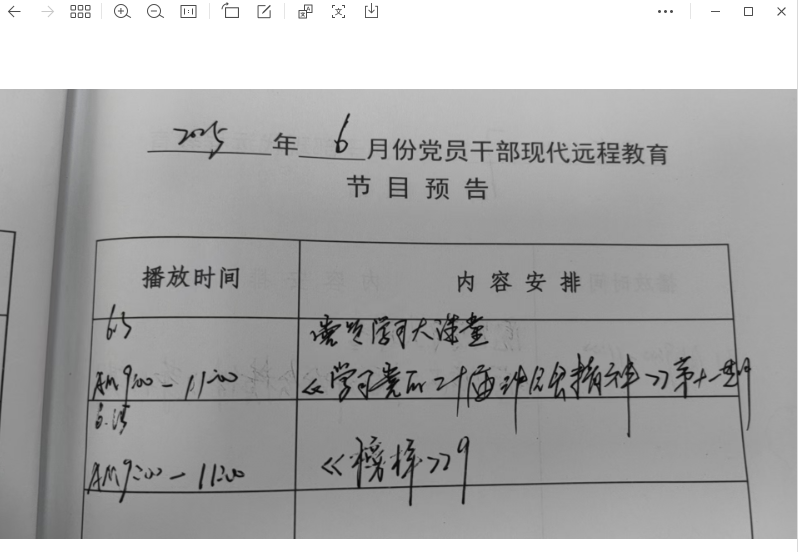 2025年6月份党员干部现代远程教育
节目预告
播放时间 内容安排
6.5
党员学习大课堂
AM9:00-11:00 《学习党的二十届三中全会精神》第十一集
6.15
AM9:00-11:00 《榜样》9